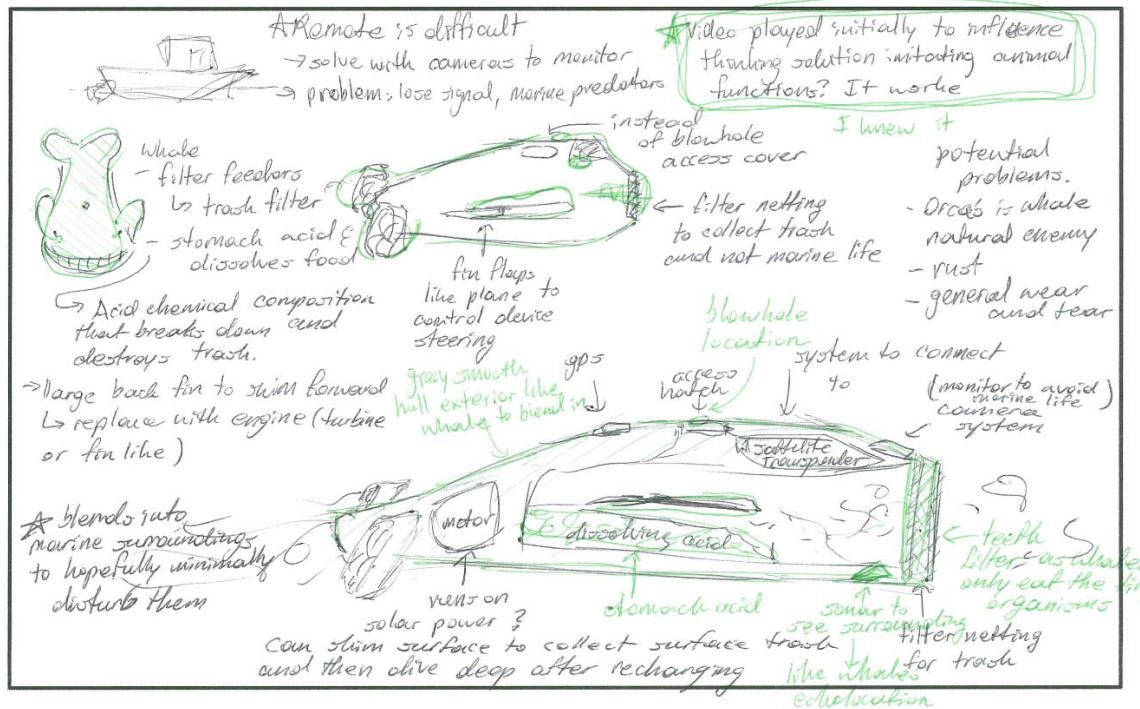 ☆Remote is difficult
→ solve with cameras to monitor
→ problem: lose signal, marine predators
★ Video played initially to influence
thinking solution imitating animal
functions? It works
I knew it
whale
- filter feeders
↳ trash filter
- stomach acid &
dissolves food
↳ Acid chemical composition
that breaks down and
destroys trash.
→ large back fin to skim forward
↳ replace with engine (turbine
or fin like)
instead
of blowhole
access cover
← filter netting
to collect trash
and not marine life
fin flaps
like plane to
control device
steering
potential
problems.
- Orca's is whale
natural enemy
- rust
- general wear
and tear
grey smooth
hull exterior like
whale to blend in
gps
access
hatch
blowhole
location
system to connect
to
(monitor to avoid)
marine life
camera
system
sattelite
transponder
motor
dissolving acid
☆ blends into
marine surroundings
to hopefully minimally
disturb them
runs on
solar power?
can skim surface to collect surface trash
and then dive deep after recharging
stomach acid
sonar to
see surrounding
like whales
echolocation
filter netting
for trash
teeth
filter - as whales
only eat the
organisms